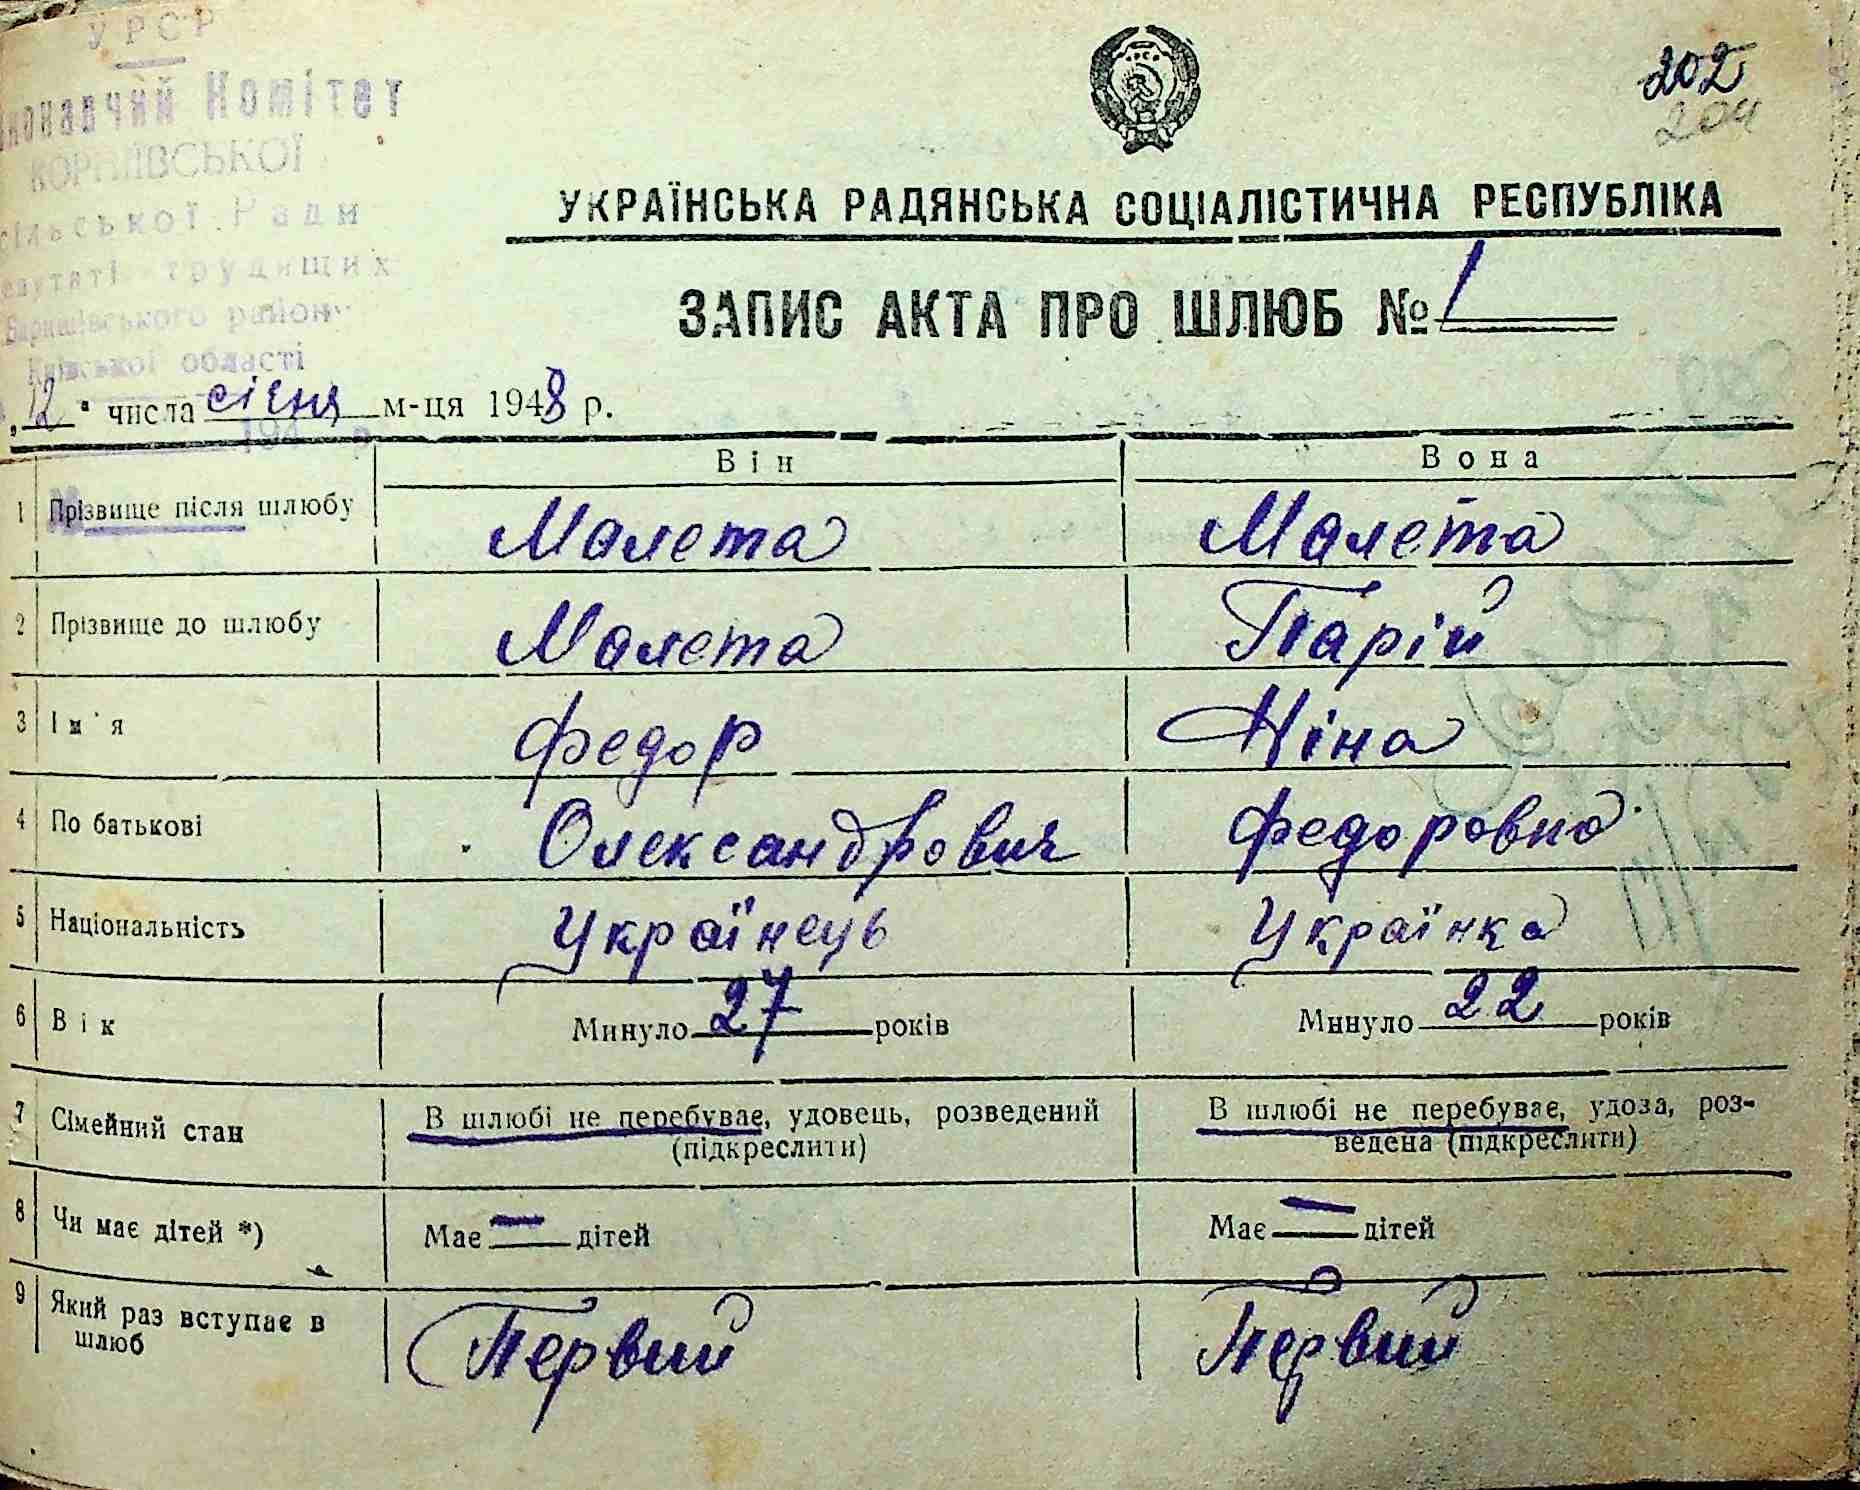 УРСР
202
204
Комітет
сільської Ради
трудящих
Баришівського району
Київської області
УКРАЇНСЬКА РАДЯНСЬКА СОЦІАЛІСТИЧНА РЕСПУБЛІКА
ЗАПИС АКТА ПРО ШЛЮБ № 1
„12“ числа січня м-ця 1948 р.
Він Вона
1 Прізвище після шлюбу Малета Малета
2 Прізвище до шлюбу Малета Парій
3 Ім'я Федор Ніна
4 По батькові Олександрович Федоровна
5 Національність Українець Українка
6 Вік Минуло 27 років Минуло 22 років
7 Сімейний стан В шлюбі не перебуває, удовець, розведений В шлюбі не перебуває, удова, роз-
(підкреслити) ведена (підкреслити)
8 Чи має дітей *) Має — дітей Має — дітей
9 Який раз вступає в Первий Первий
шлюб